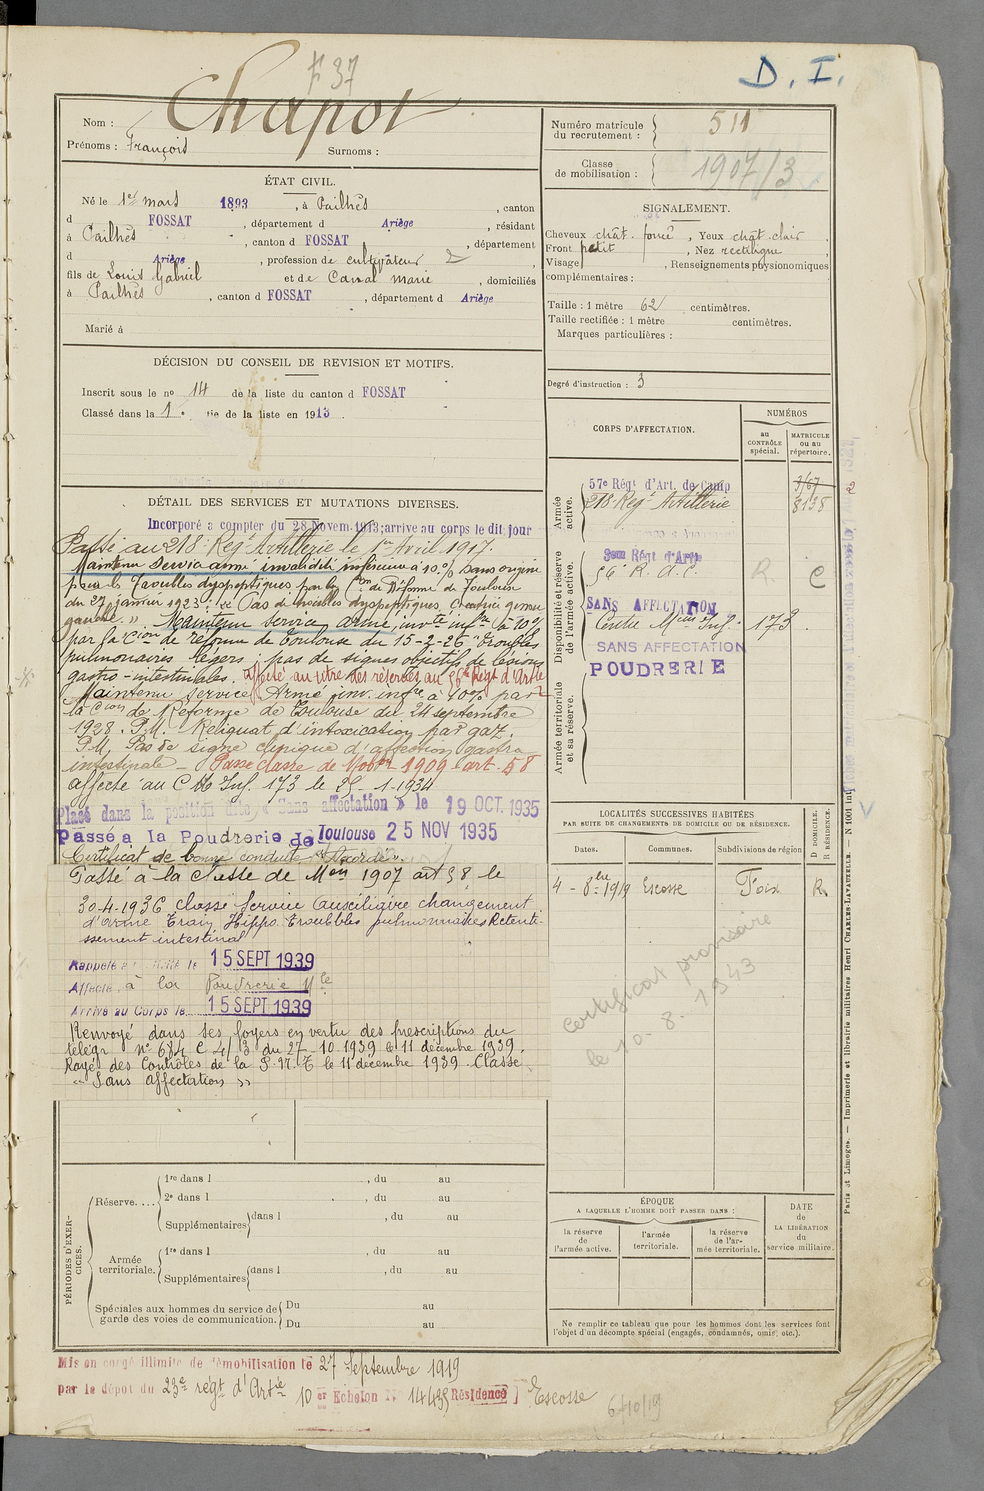 F 37
D. I.
Nom : Chapot
Prénoms : François Surnoms :
Numéro matricule du recrutement : 511
Classe de mobilisation : 1907/3
ÉTAT CIVIL.
Né le 1er mars 1893, à Pailhès, canton
d FOSSAT, département d Ariège, résidant
à Pailhès, canton d FOSSAT, département
d Ariège, profession de cultivateur
fils de Louis Gabriel et de Carral marie, domiciliés
à Pailhès, canton d FOSSAT, département d Ariège
Marié à
SIGNALEMENT.
Cheveux chât. foncé, Yeux chât. clair,
Front petit, Nez rectiligne,
Visage, Renseignements physionomiques
complémentaires :
Taille : 1 mètre 62 centimètres.
Taille rectifiée : 1 mètre centimètres.
Marques particulières :
Degré d'instruction : 3
DÉCISION DU CONSEIL DE REVISION ET MOTIFS.
Inscrit sous le no 14 de la liste du canton d FOSSAT
Classé dans la 1e tie de la liste en 1913.
DÉTAIL DES SERVICES ET MUTATIONS DIVERSES.
Incorporé à compter du 28 Novem. 1913; arrivé au corps le dit jour
Passé au 218e Régt Artillerie le 1er Avril 1917.
Maintenu Service armé invalidité inférieure à 10 % sans origine
pour les troubles dyspeptiques par la Con de Réforme de Toulouse
du 27 janvier 1923 : "Pas de troubles dyspeptiques
gauche". Maintenu Service armé invté infre à 10%
par la Cion de réforme de Toulouse du 15-2-26 "Troubles
pulmonaires légers, pas de signes objectifs de lésions
gastro-intestinales. Affecté au titre des réserves au 56e Régt d'Artie
Maintenu service Armé inv. infre à 10% par
la Cion de Réforme de Toulouse du 24 septembre
1928. P.M. Reliquat d'intoxication par gaz.
P.M. Pas de signe clinique d'affection gastro
intestinale – Passé classe de Mobon 1909 art. 58
affecté au C M Inf. 173 le 25-1-1934
Placé dans la position dite « Sans affectation » le 19 OCT. 1935
Passé à la Poudrerie de Toulouse 25 NOV 1935
Certificat de bonne conduite "Accordé".
Passé à la Classe de Mon 1907 art 58 le
30-4-1936 classé Service Auxiliaire changement
d'arme Train Hippo. Troubles pulmonaires Retenti-
ssement intestinal
Rappelé à l'activité le 15 SEPT 1939
Affecté à la Poudrerie Nle
Arrivé au Corps le 15 SEPT 1939
Renvoyé dans ses foyers en vertu des prescriptions du
télégr. n° 684 C 4/3 du 27-10-1939 le 11 décembre 1939.
Rayé des Contrôles de la P.N.T le 11 décembre 1939. Classé
"Sans affectation"
CORPS D'AFFECTATION.
NUMÉROS
au CONTRÔLE spécial.
MATRICULE ou au répertoire.
Armée active.
57e Régt d'Art. de Camp
218 Regt Artillerie
3/67
8138
2
Disponibilité et réserve de l'armée active.
3eme Régt d'Artie
56e R.A.C. R. C
SANS AFFECTATION
Centre Mon Inf. 173
SANS AFFECTATION
POUDRERIE
Armée territoriale et sa réserve.
LOCALITÉS SUCCESSIVES HABITÉES
PAR SUITE DE CHANGEMENTS DE DOMICILE OU DE RÉSIDENCE.
Dates. Communes. Subdivisions de région
D DOMICILE. R RÉSIDENCE.
4-8bre 1919 Escosse Foix R.
Certificat provisoire
le 10. 8. 1943
PÉRIODES D'EXERCICES.
Réserve....
1re dans l , du au
2e dans l , du au
Supplémentaires dans l , du au
Armée territoriale.
1re dans l , du au
Supplémentaires dans l , du au
Spéciales aux hommes du service de garde des voies de communication.
Du au
Du au
ÉPOQUE
A LAQUELLE L'HOMME DOIT PASSER DANS :
la réserve de l'armée active.
l'armée territoriale.
la réserve de l'armée territoriale.
DATE de LA LIBÉRATION du service militaire.
Ne remplir ce tableau que pour les hommes dont les services font
l'objet d'un décompte spécial (engagés, condamnés, omis, etc.).
Paris et Limoges. — Imprimerie et librairie militaires Henri CHARLES-LAVAUZELLE. — N 1001 int
Mis en congé illimité de démobilisation le 27 Septembre 1919
par le dépôt du 23e régt d'Artie 10er Echelon No 14435 Résidence ] Escosse
6/10/19